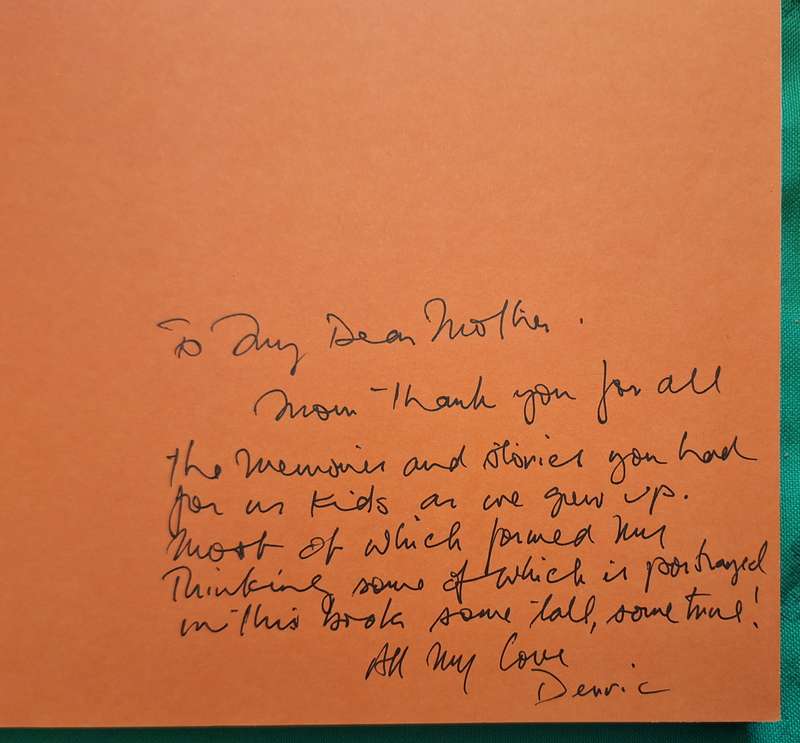 To My Dear Mother.
Mom Thank you for all
the memories and stories you had
for us kids as we grew up.
Most of which formed my
Thinking some of which is portrayed
in this book some tall, some true!
All My Love
Denric